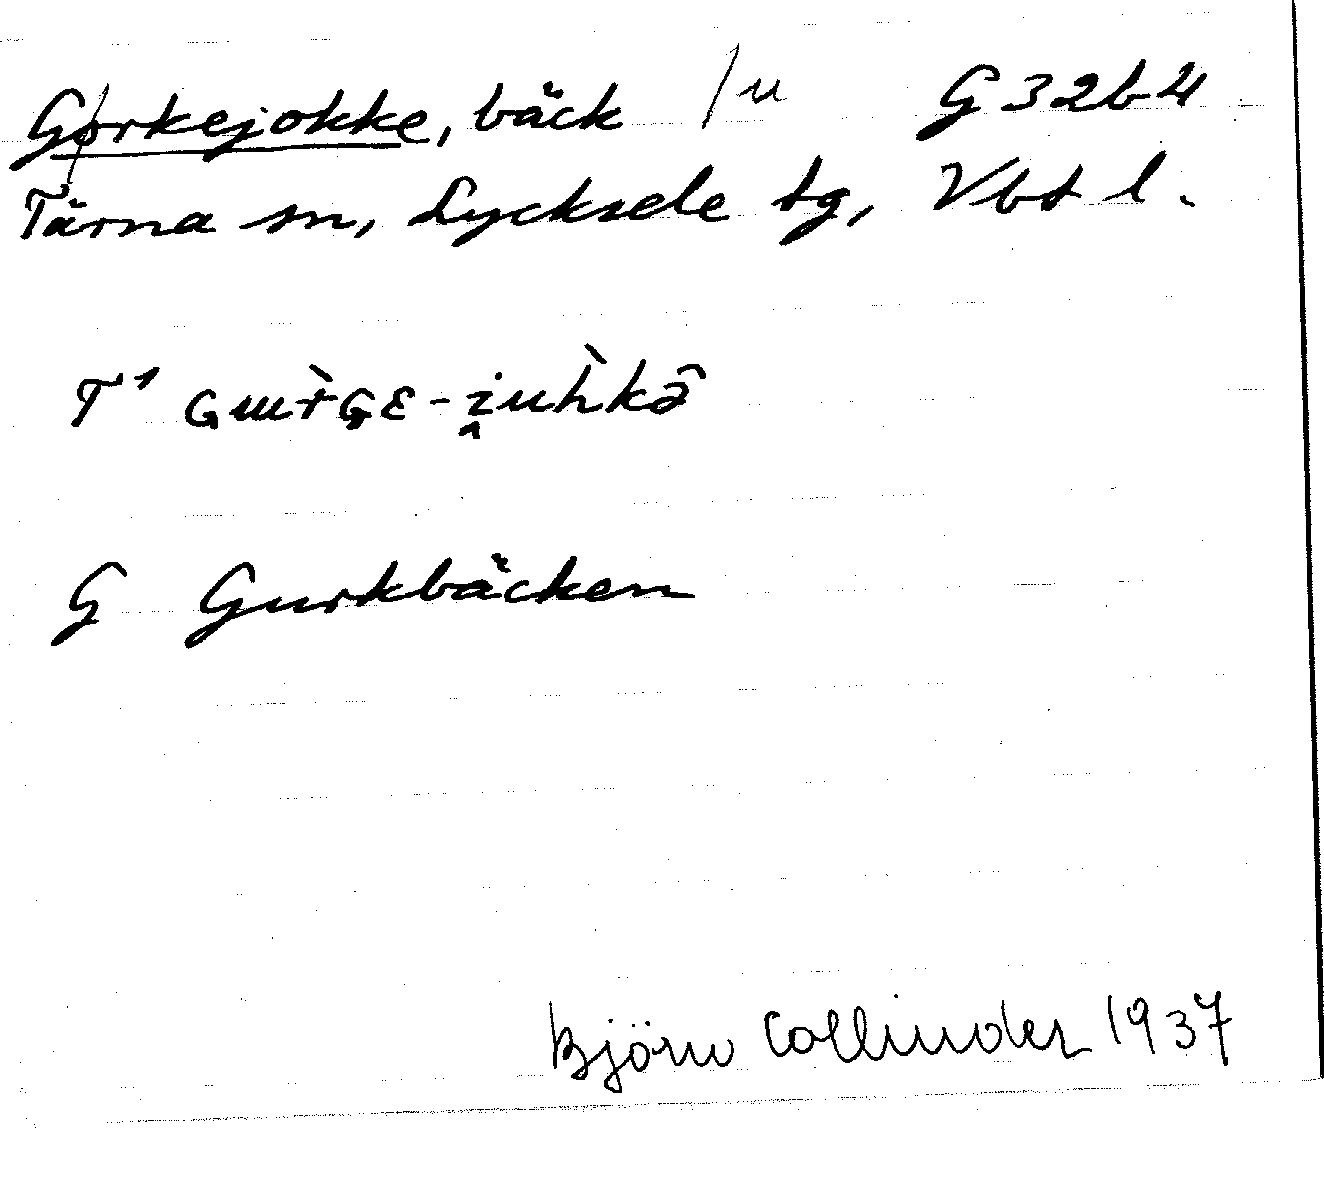 Gorkejokke, bäck /u G32b4
Tärna sn, Lycksele tg, Vbt l.
T¹ ɢɯr̀ɢᴇ-i̭uh̀kə̂
G Gurkbäcken
Björn Collinder 1937